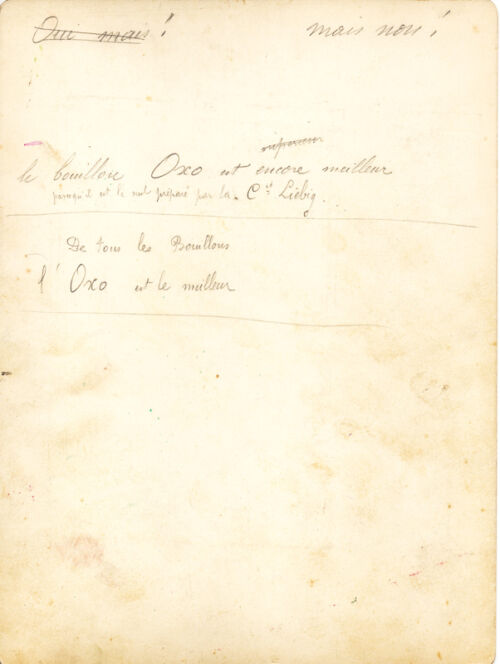 Oui mais !
mais non !
supérieur
le bouillon Oxo est encore meilleur
puisqu'il est le seul préparé par la Cie Liébig.
De tous les Bouillons
l'Oxo est le meilleur